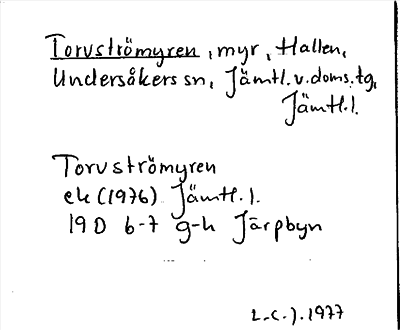 Torvströmyren, myr, Hallen,
Undersåkers sn, Jämtl.v.doms.tg,
Jämtl.l.
Torvströmyren
ek (1976) Jämtl.l.
19D 6-7 g-h Järpbyn
L.C.J. 1977